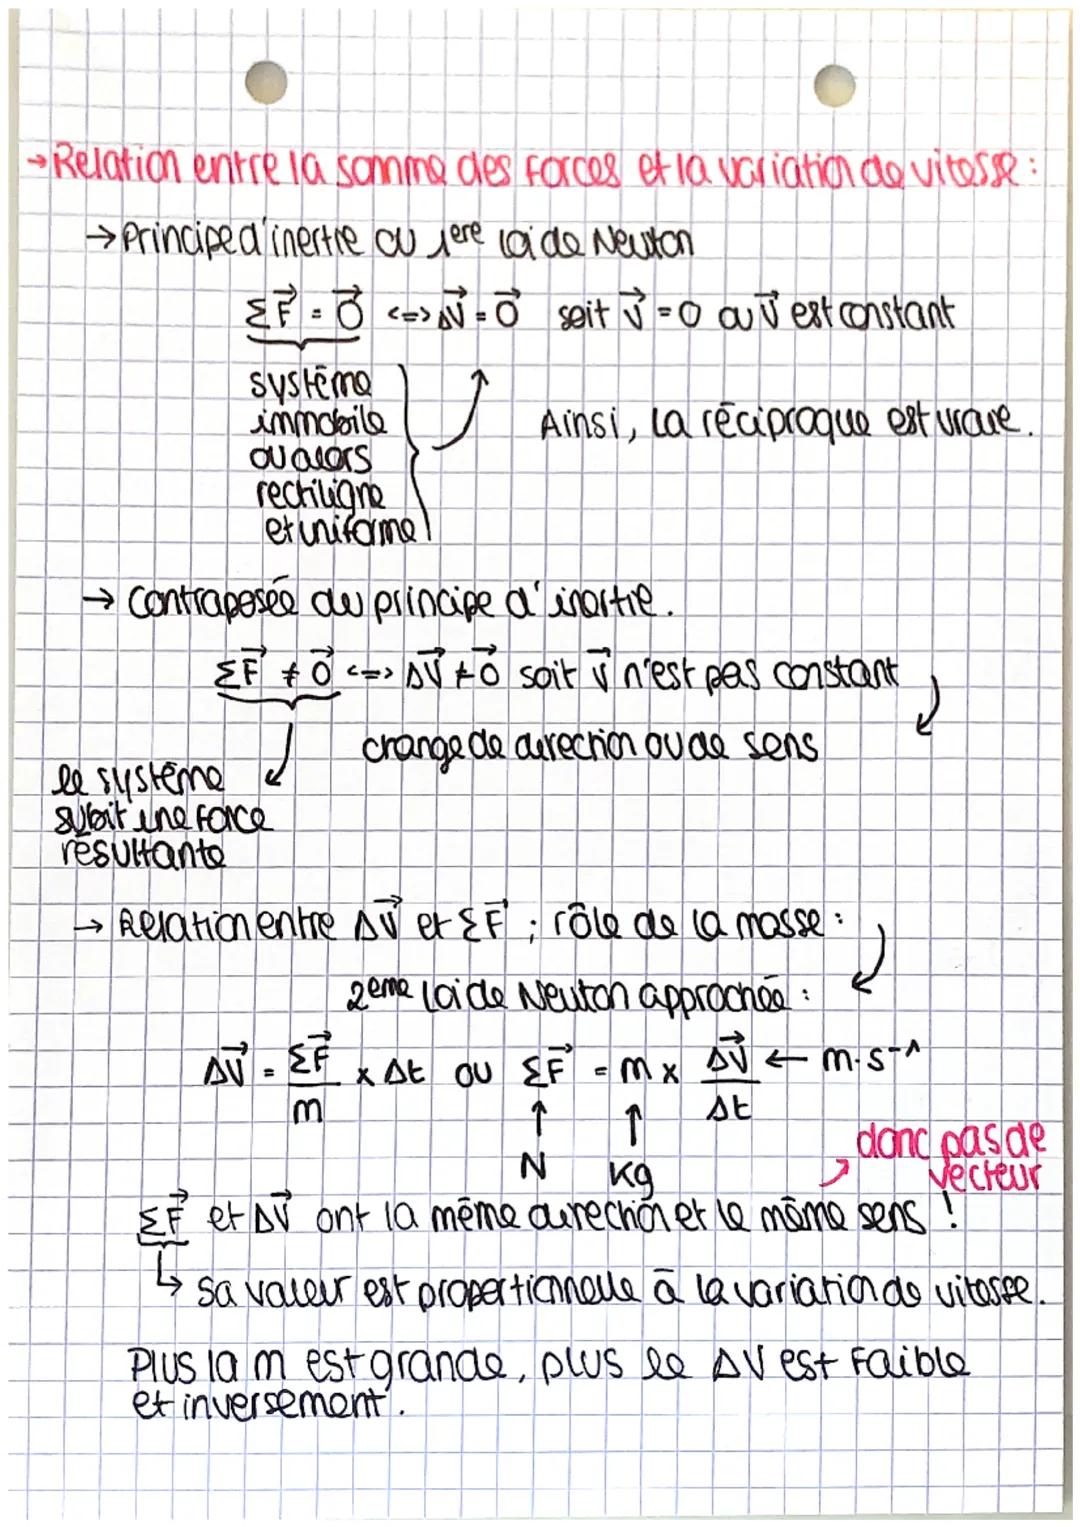 →Relation entre la somme des forces et la variation de vitesse :
→ Principe d'inertie ou 1ere loi de Newton
ΣF⃗ = 0⃗ <=> ΔV⃗ = 0⃗ soit V⃗ = 0 ou V⃗ est constant
système
immobile
ou alors
rectiligne
et uniforme
Ainsi, la réciproque est vraie.
→ Contraposée du principe d'inertie.
ΣF⃗ ≠ 0⃗ <=> ΔV⃗ ≠ 0⃗ soit V⃗ n'est pas constant
change de direction ou de sens
le système
subit une force
résultante
→ Relation entre ΔV⃗ et ΣF⃗ ; rôle de la masse :
2eme loi de Newton approchée :
ΔV⃗ = ΣF⃗/m x Δt ou ΣF⃗ = m x ΔV⃗/Δt ← m.s⁻¹
↑ ↑
N Kg
donc pas de
vecteur
ΣF⃗ et ΔV⃗ ont la même direction et le même sens !
↳ sa valeur est proportionnelle à la variation de vitesse.
Plus la m est grande, plus le ΔV est faible
et inversement.